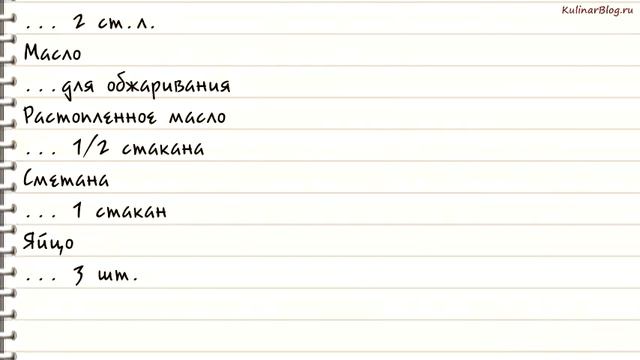 KulinarBlog.ru
... 2 ст.л.
Масло
...для обжаривания
Растопленное масло
... 1/2 стакана
Сметана
... 1 стакан
Яйцо
... 3 шт.